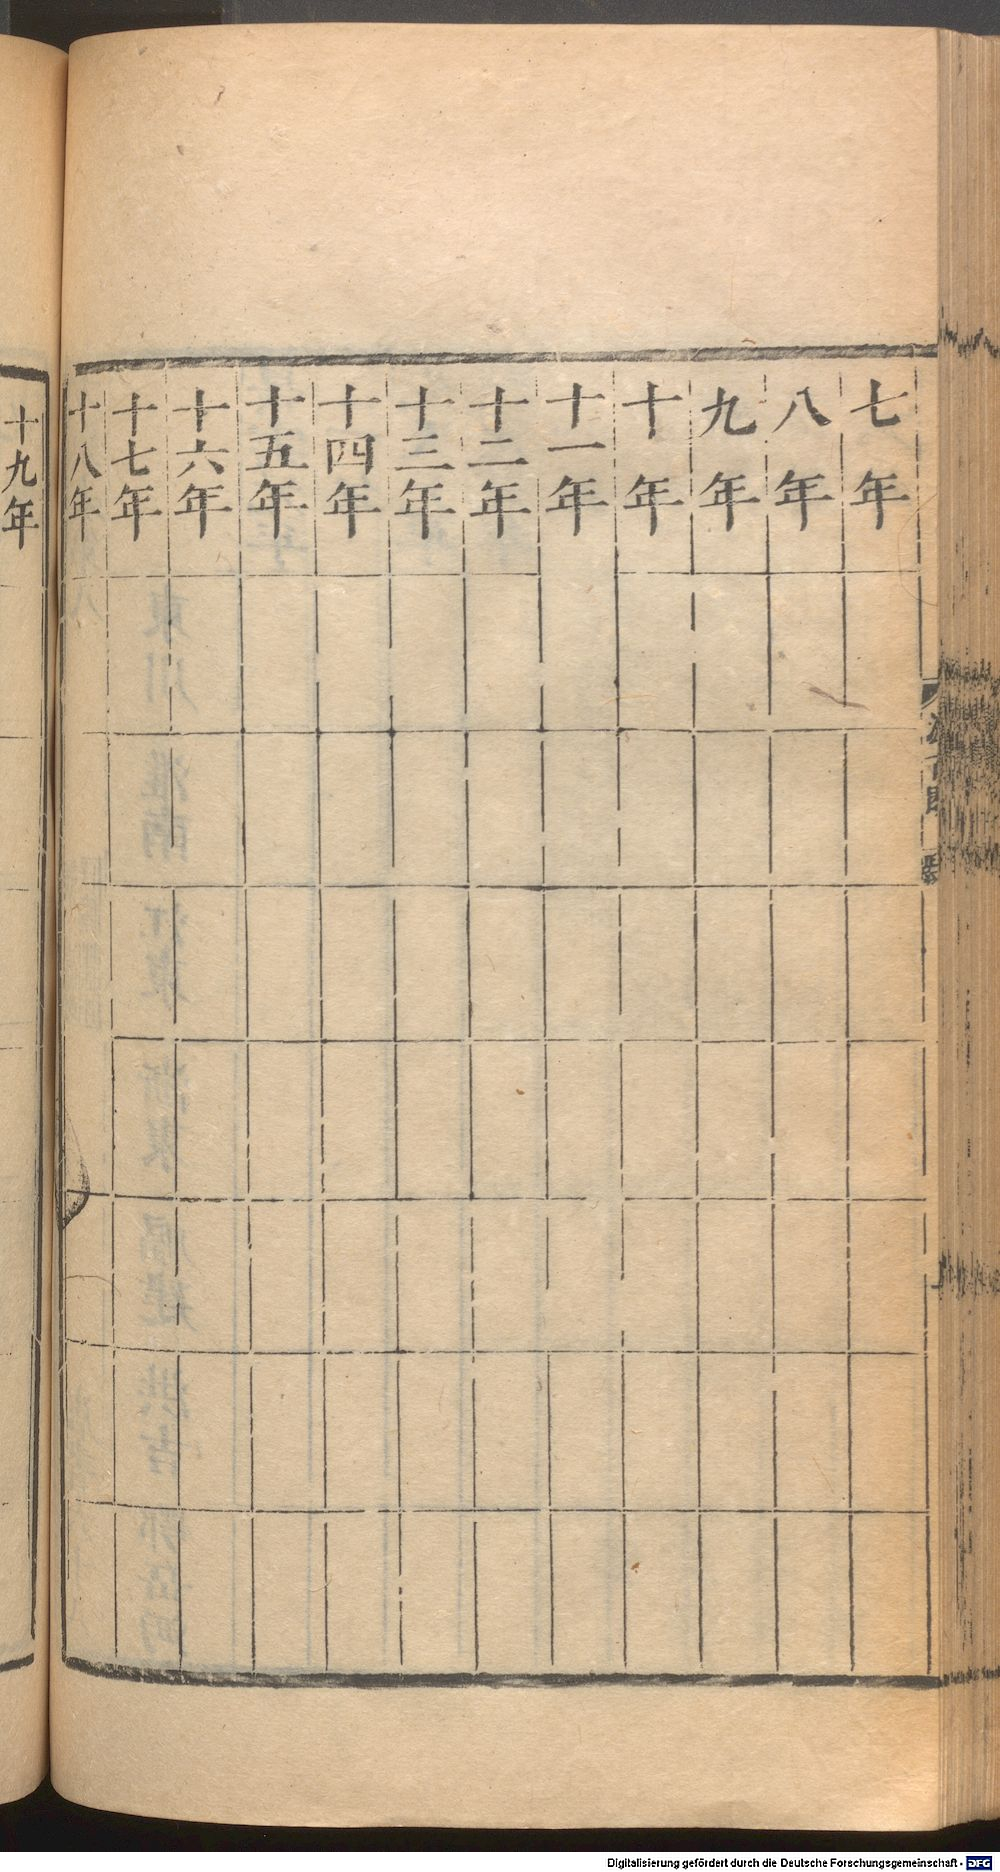 七年
八年
九年
十年
十一年
十二年
十三年
十四年
十五年
十六年
十七年
十八年
十九年
Digitalisierung gefördert durch die Deutsche Forschungsgemeinschaft - DFG